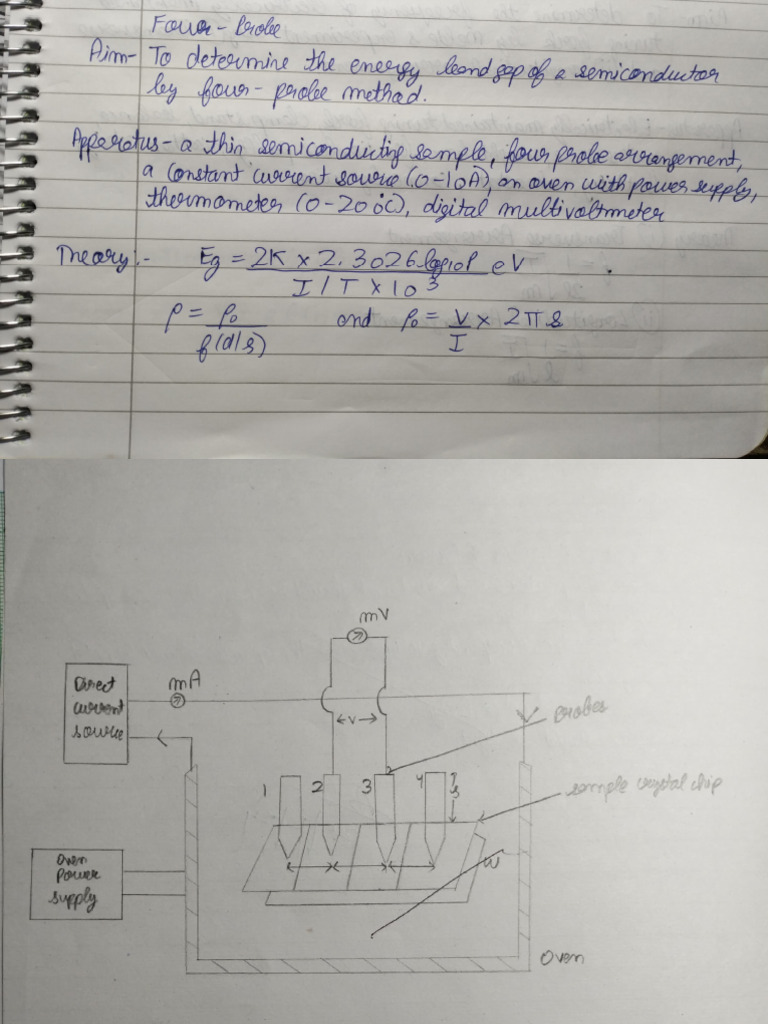 Four-Probe
Aim- To determine the energy band gap of a semiconductor
by four-probe method.
Apparatus- a thin semiconducting sample, four probe arrangement,
a constant current source (0-10A), an oven with power supply,
thermometer (0-200°C), digital multivoltmeter
Theory:- Eg = 2K x 2.3026 log10ρ eV
I/T x 10³
ρ = ρ₀ and ρ₀ = V x 2πs
f(d/s) I
mV
Direct
current
source
mA
V
Probes
1 2 3 4 s
sample crystal chip
Oven
Power
supply
W
Oven